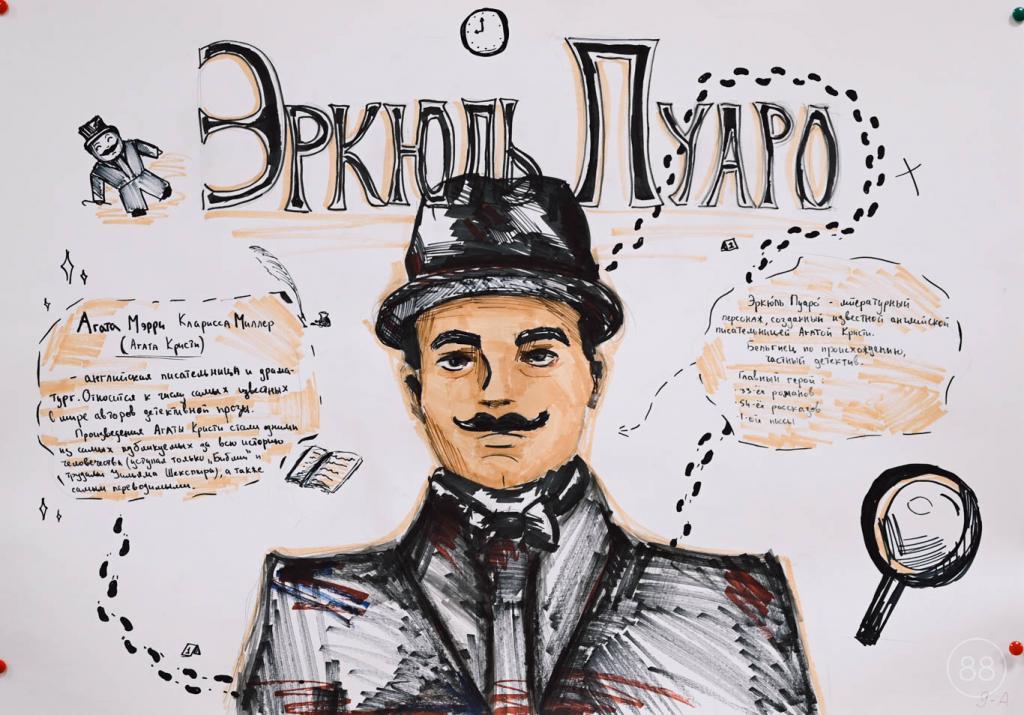 Эркюль Пуаро
Агата Мэрри Кларисса Миллер
(Агата Кристи)
- английская писательница и драма-
тург. Относится к числу самых известных
в мире авторов детективной прозы.
Произведения Агаты Кристи стали одними
из самых публикуемых за всю историю
человечества (уступая только „Библии" и
трудам Уильяма Шекспира), а также
самыми переводимыми.
1
2
Эркю́ль Пуаро́ - литературный
персонаж, созданный известной английской
писательницей Агатой Кристи.
Бельгиец по происхождению,
частный детектив.
Главный герой:
33-ёх романов
54-ёх рассказов
1-ой пьесы
88
9-А